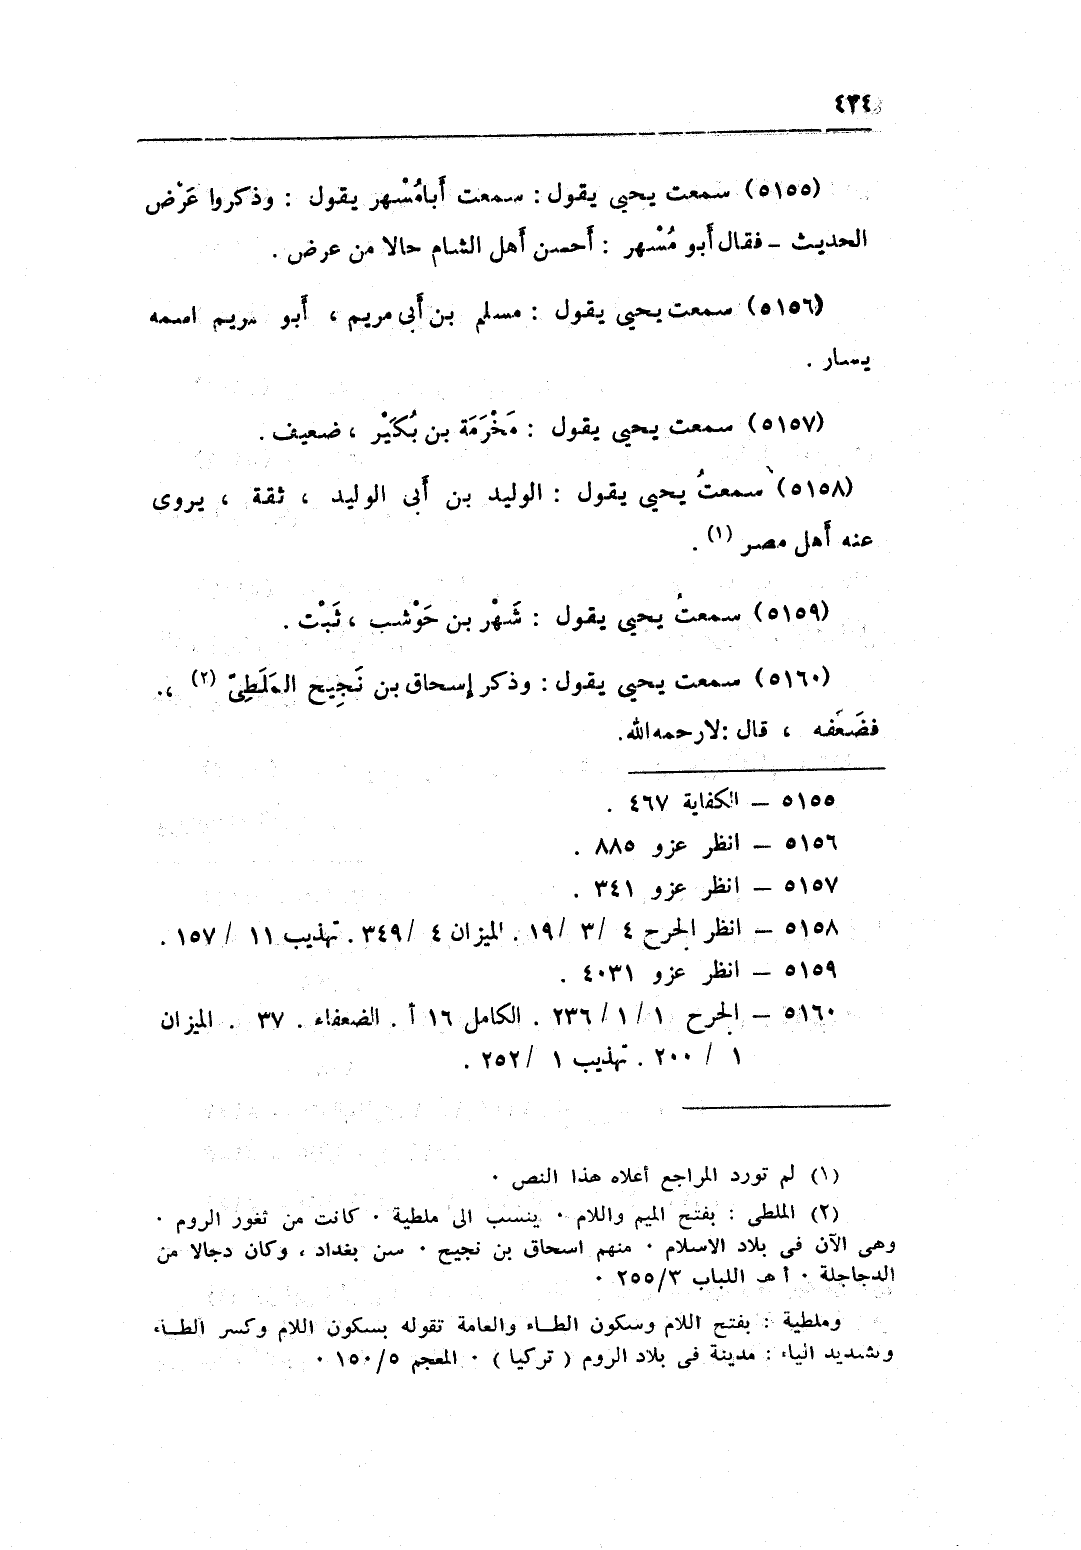 ٤٣٤
(٥١٥٥) سمعت يحيى يقول : سمعت أَبامُسْهر يقول : وذكروا عَرْض
الحديث – فقال أَبو مُسْهر : أَحسن أَهل الشام حالا من عرض .
(٥١٥٦) سمعت يحيى يقول : مسلم بن أَبى مريم ، أَبو مريم اسمه
يسار .
(٥١٥٧) سمعت يحيى يقول : مَخْرَمَة بن بُكَيْر ، ضعيف .
(٥١٥٨) سمعتُ يحيى يقول : الوليد بن أَبى الوليد ، ثقة ، يروى
عنه أَهل مصر (١) .
(٥١٥٩) سمعتُ يحيى يقول : شَهْر بن حَوْشب ، ثَبْت .
(٥١٦٠) سمعت يحيى يقول : وذكر إسحاق بن نَجِيح المَلَطِىّ (٢) ،.
فضَعَفه ، قال :لارحمه الله.
٥١٥٥ – الكفاية ٤٦٧ .
٥١٥٦ – انظر عزو ٨٨٥ .
٥١٥٧ – انظر عزو ٣٤١ .
٥١٥٨ – انظر الجرح ٤ /٣ /١٩ . الميزان ٤ /٣٤٩ . تهذيب ١١ /١٥٧ .
٥١٥٩ – انظر عزو ٤٠٣١ .
٥١٦٠ – الجرح ١ /١ /٢٣٦ . الكامل ١٦ أ . الضعفاء . ٣٧ . الميزان
١ / ٢٠٠ . تهذيب ١ /٢٥٢ .
(١) لم تورد المراجع أعلاه هذا النص ٠
(٢) الملطى : بفتح الميم واللام ٠ ينسب الى ملطية ٠ كانت من ثغور الروم ٠
وهى الآن فى بلاد الاسلام ٠ منهم اسحاق بن نجيح ٠ سن بغداد ، وكان دجالا من
الدجاجلة ٠ أ هـ اللباب ٢٥٥/٣ ٠
وملطية : بفتح اللام وسكون الطـاء والعامة تقوله بسكون اللام وكسر الطـاء
وتشديد الياء : مدينة فى بلاد الروم ( تركيا ) ٠ المعجم ١٥٠/٥ ٠